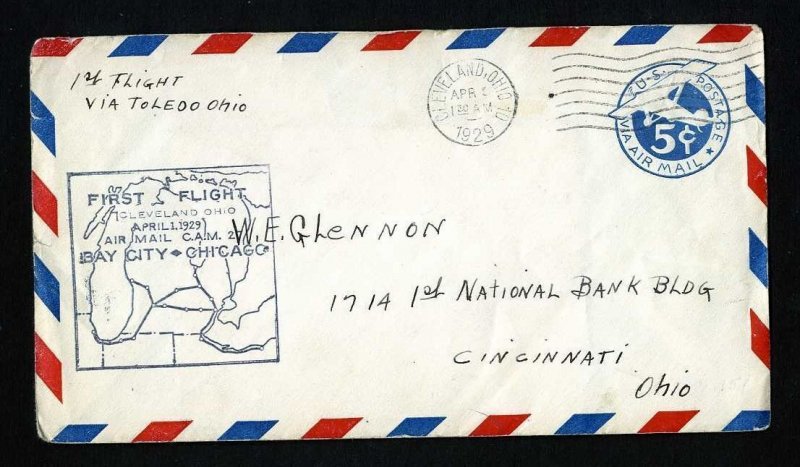 1st FLIGHT
VIA TOLEDO OHIO
CLEVELAND, OHIO
APR
1929
U.S. POSTAGE
5¢
VIA AIR MAIL
FIRST FLIGHT
CLEVELAND OHIO
APRIL 1, 1929
AIR MAIL C.A.M. 2
BAY CITY CHICAGO
W. E. GLENNON
1714 1st NATIONAL BANK BLDG
CINCINNATI
Ohio